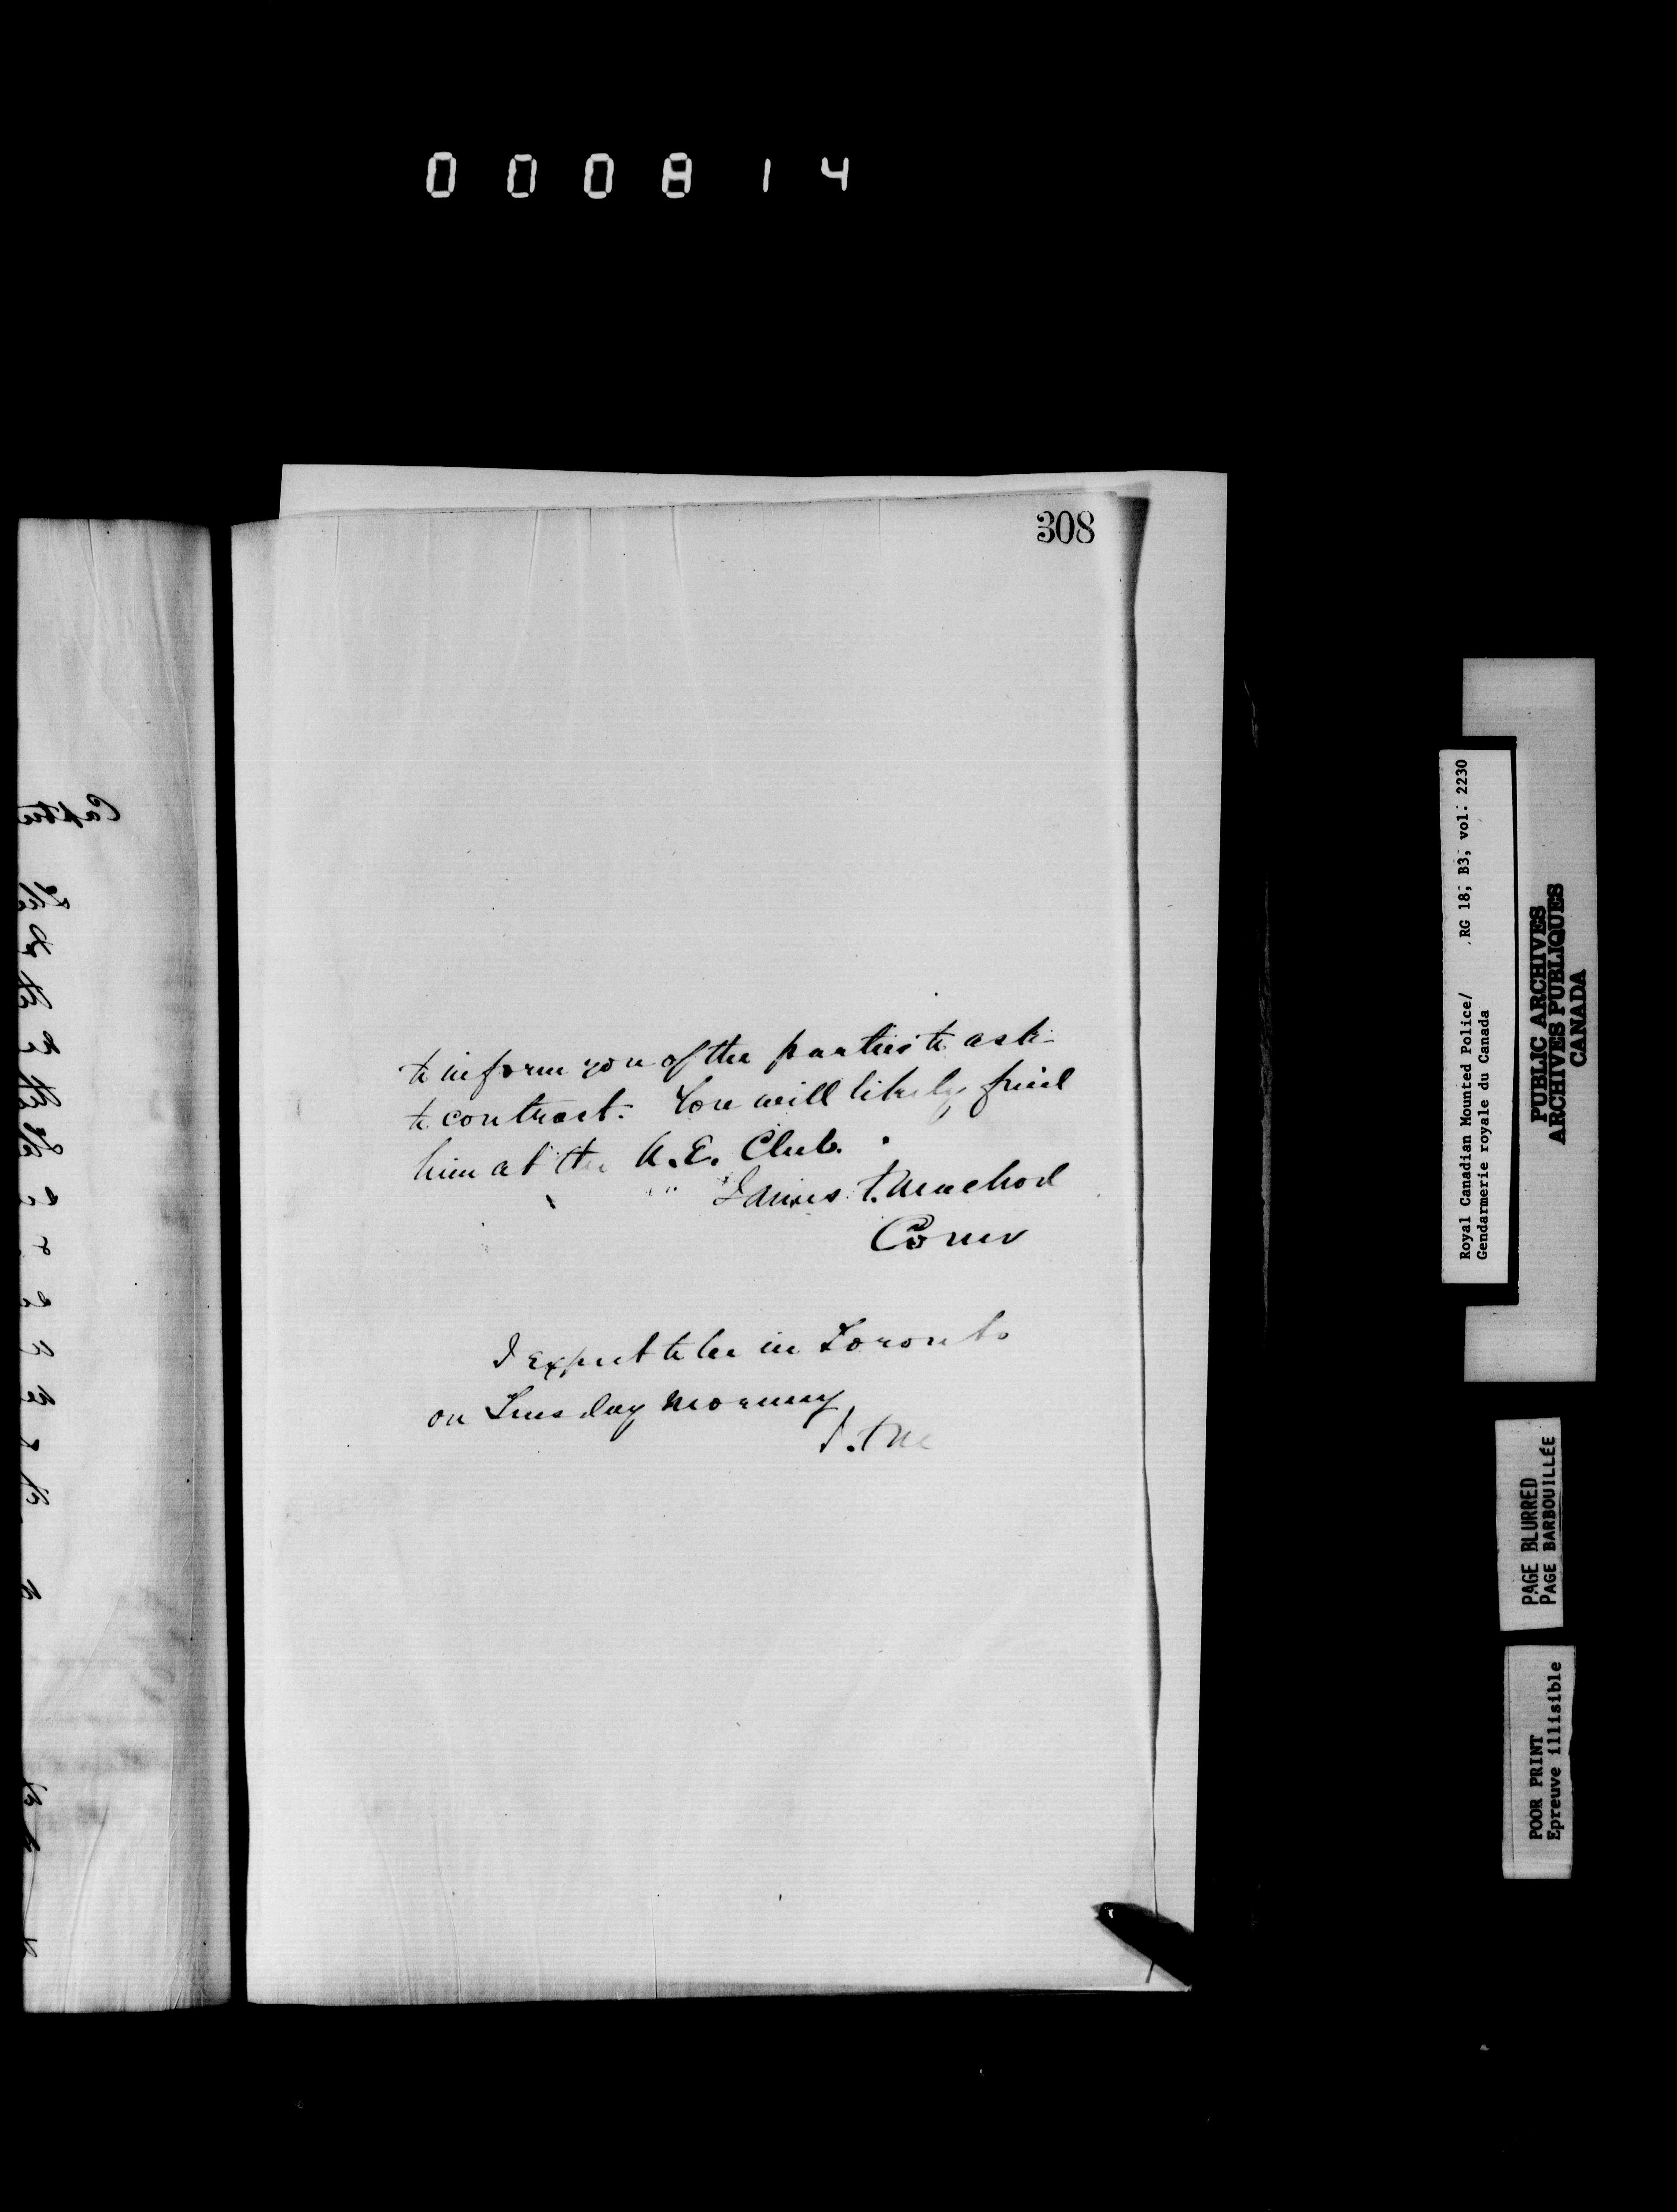 000814
308
to inform you of the parties to ask
to contract. You will likely find
him at the U.E. Club.
James F. Macleod
Comr
I expect to be in Toronto
on Tuesday morning
J.F.M.
Captn
Royal Canadian Mounted Police/ RG 18, B3, vol. 2230
Gendarmerie royale du Canada
PUBLIC ARCHIVES
ARCHIVES PUBLIQUES
CANADA
PAGE BLURRED
PAGE BARBOUILLÉE
POOR PRINT
Epreuve illisible